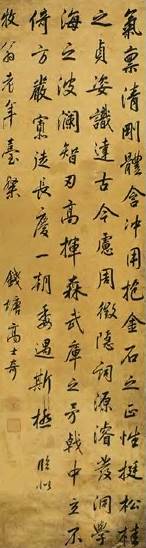 氣稟清剛體含沖用抱金石之正性挺松桂
之貞姿識達古今慮周微隱詞源濬發洞學
海之波瀾智刃高揮森武庫之矛戟中立不
倚方嚴寡徒長慶一朝委遇斯極 臨似
牧翁老年臺粲 錢塘高士奇